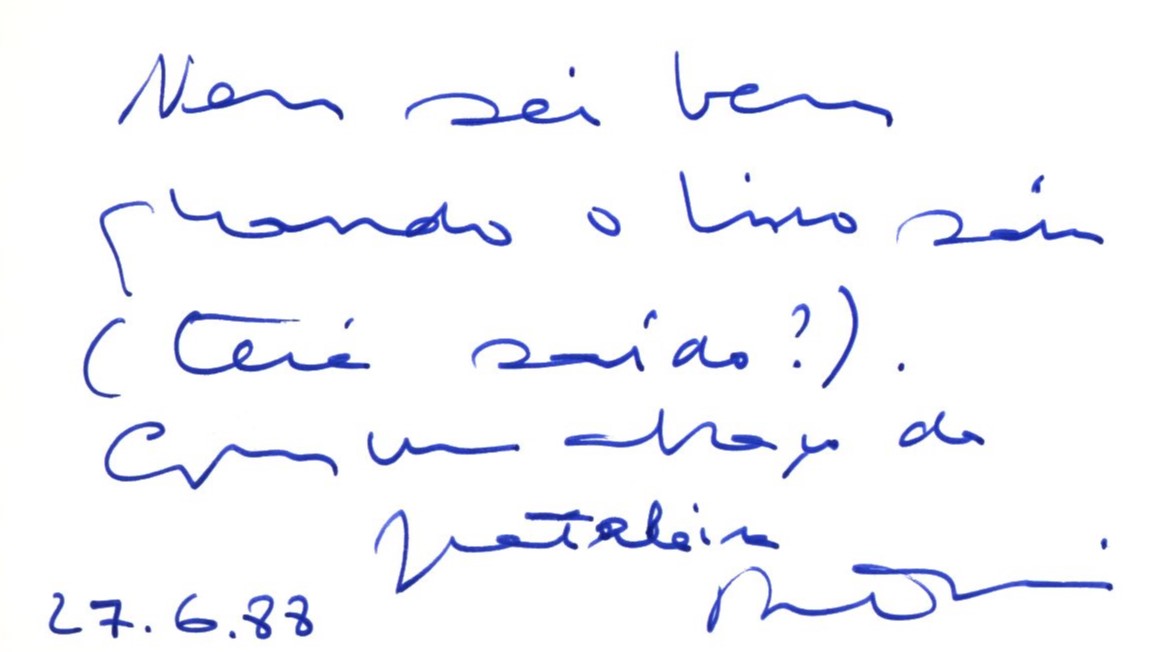 Nem sei bem
quando o livro sái
(terá saído?).
Com um abraço de
27.6.88